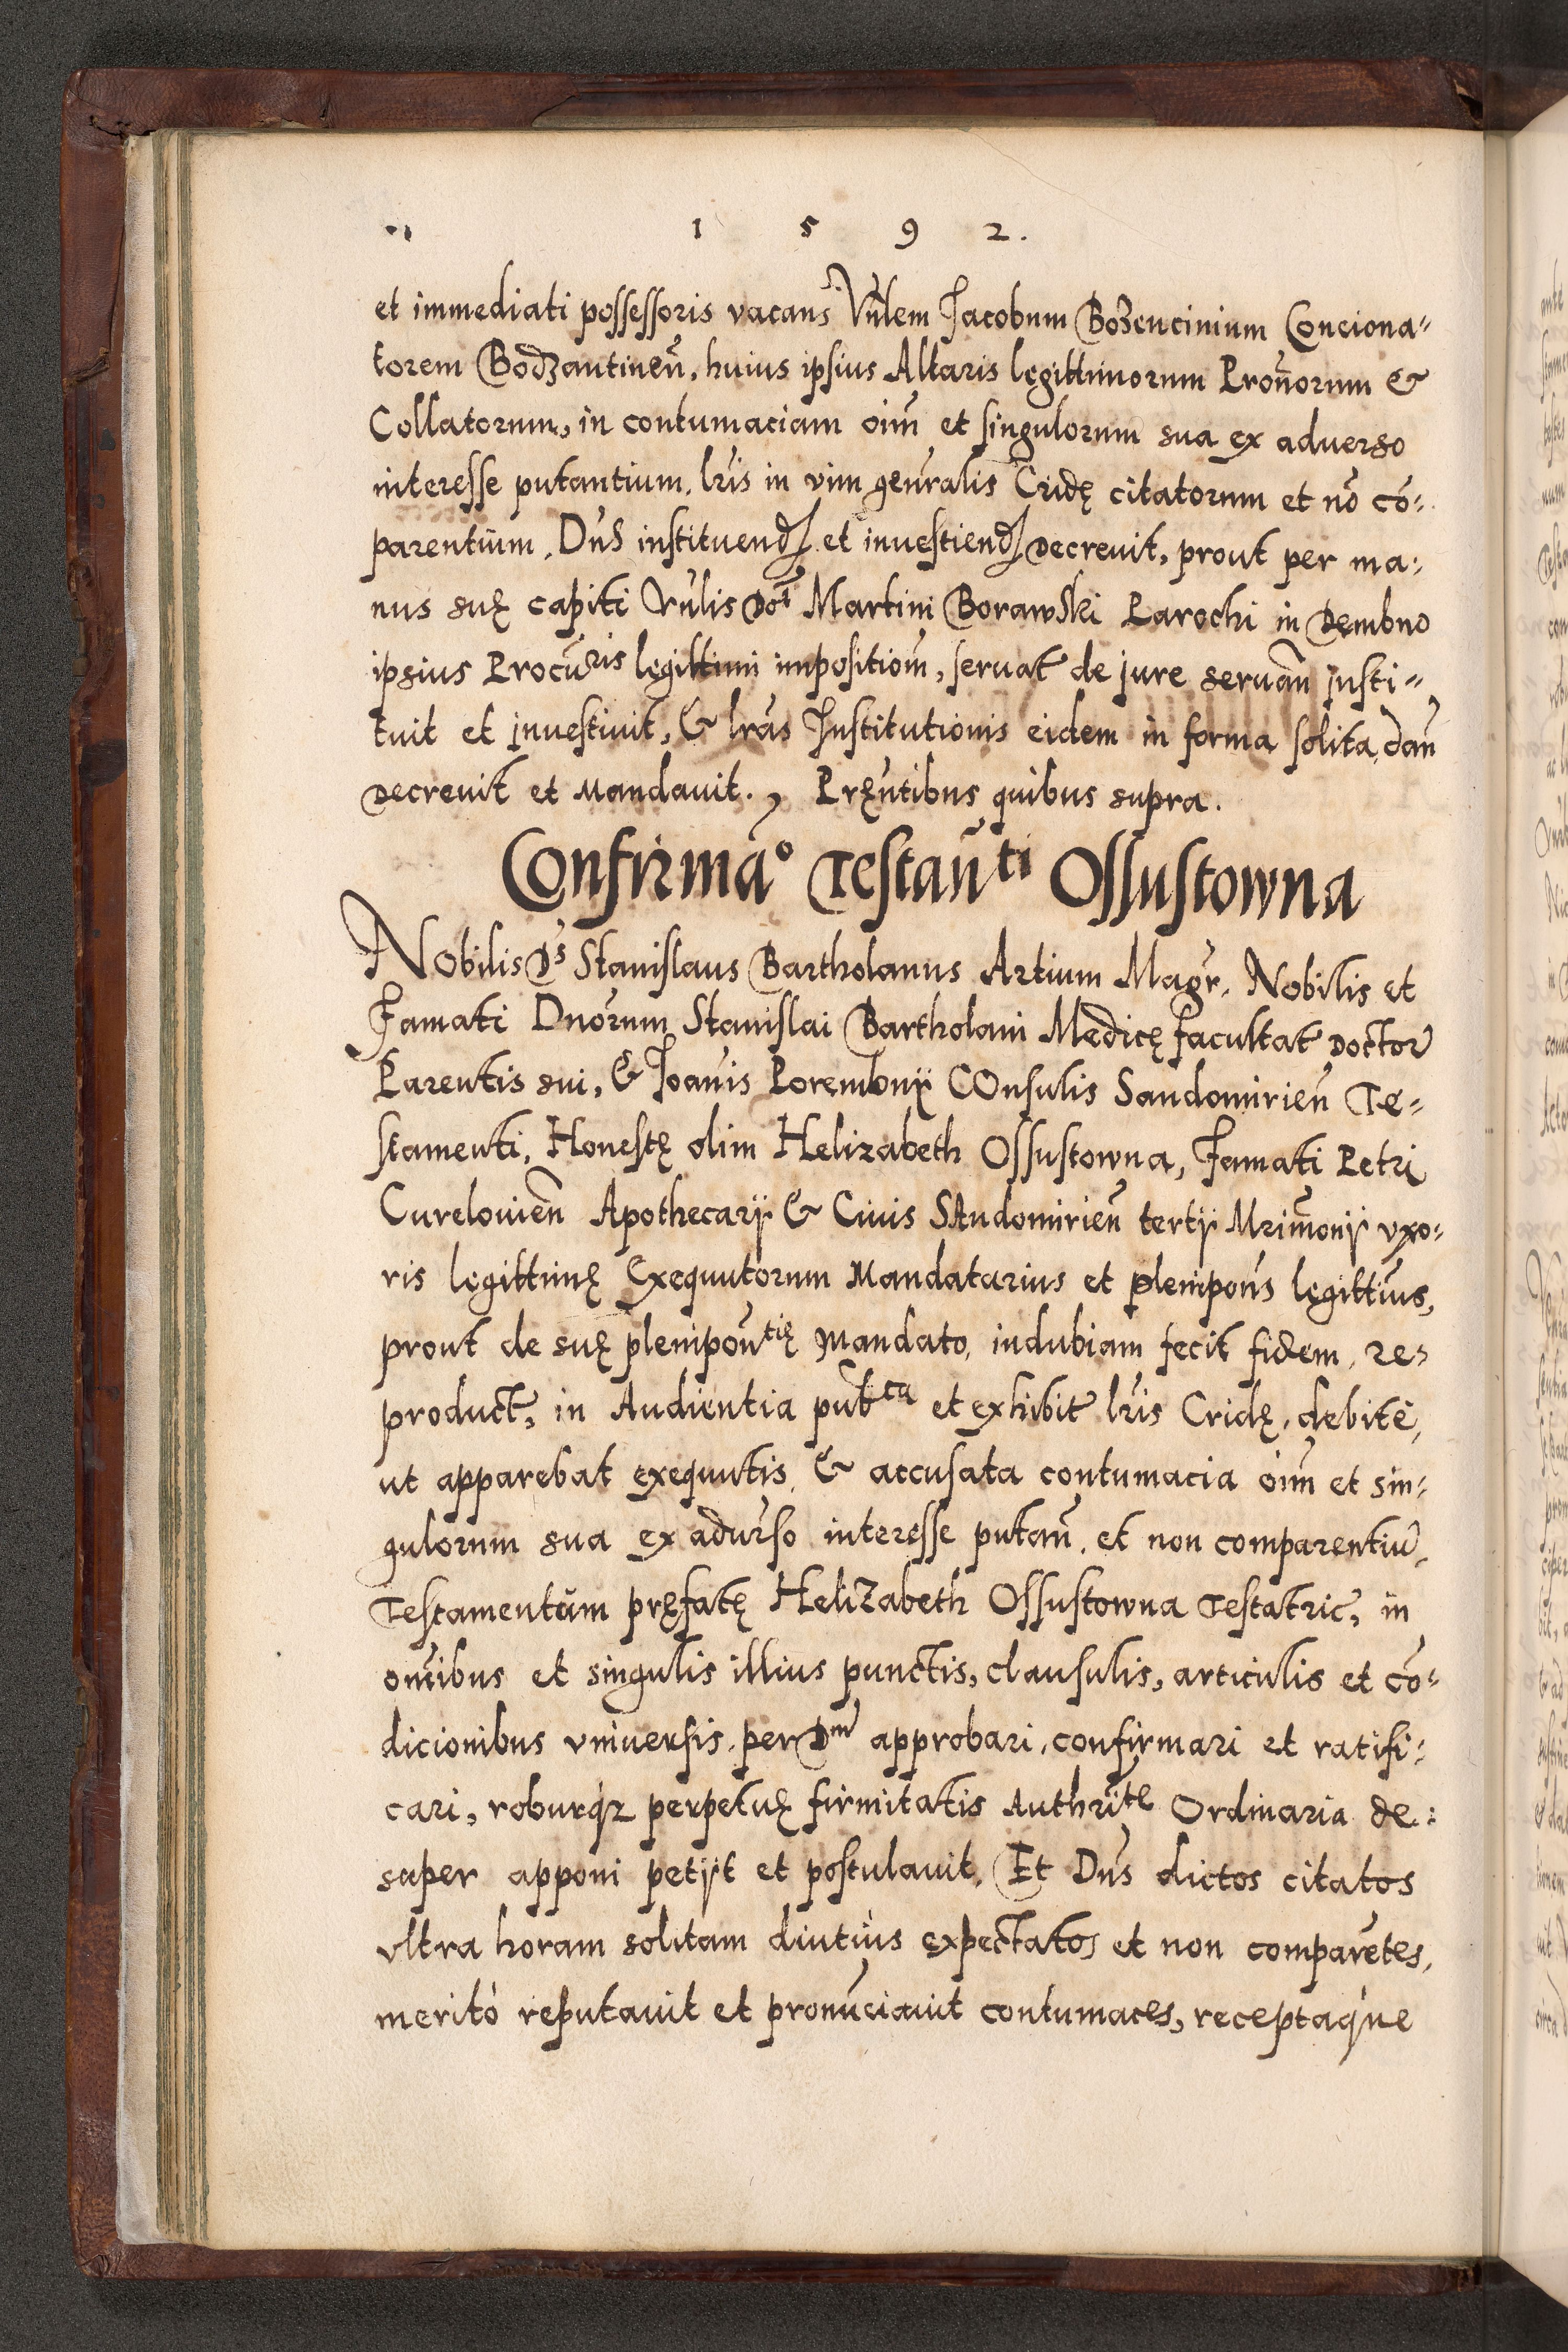 1 5 9 2.
et immediati possessoris vacan̄s Vn̄lem Jacobum Bozencinium Conciona-
torem Bodzantineñ, huius ipsius Altaris legittimorum Pron̄orum &
Collatorum, in contumaciam oim̄ et singulorum sua ex aduerso
interesse putantium, lr̄is in vim gen̄ralis Cridę citatorum et nō cō-
parentium, Dn̄s instituend et inuestiend decreuit, prout per ma-
nus suę capiti Vn̄lis Dn̄i Martini Borawski Parochi in Dembno
ipsius Procūris legittimi impositiom̄, seruat de jure seruan̄ insti-
tuit et inuestiuit, & lrās Institutionis eidem in forma solita dan̄
decreuit et mandauit., Pręn̄tibus quibus supra.
Confirmāo Testan̄ti Ossustowna
Nobilis Ds Stanislaus Bartholanus Artium Magr̄, Nobilis et
Famati Dnōrum Stanislai Bartholani Medicę facultat Doctor
Parentis sui, & Joan̄is Porembnÿ COnsulis Sandomirien̄ Te-
stamenti, Honestę olim Helizabeth Ossustowna, Famati Petri
Curelouien̄ Apothecarÿ & Ciuis SAndomirien̄ tertÿ Mrim̄onÿ vxo-
ris legittimę Exequutorum Mandatarius et plenipon̄s legittīus,
prout de suę plenipon̄tię mandato, indubiam fecit fidem, re-
product, in Audientia pub̄ca et exhibit lr̄is Cridę, debitè,
ut apparebat exequutis, & accusata contumacia oim̄ et sin-
gulorum sua ex adur̄so interesse putan̄, et non comparentiū,
Testamentum pręfatę Helizabeth Ossustowna Testatric, in
om̄ibus et singulis illius punctis, clausulis, articulis et cō-
dicionibus vniuersis, per Dm̄ approbari, confirmari et ratifi-
cari, roburqz perpetuę firmitatis Authr̄ite Ordinaria de-
super apponi petÿt et postulauit. Et Dn̄s dictos citatos
vltra horam solitam diutius expectatos et non comparētes,
meritò reputauit et pronūciauit contumaces, receptaque